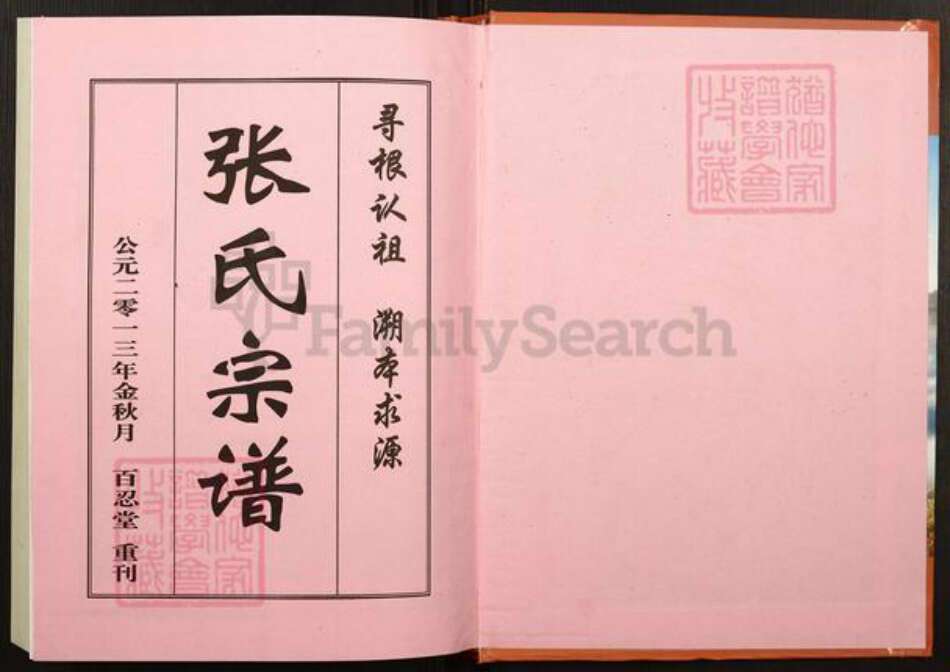 寻根认祖 溯本求源
张氏宗谱
公元二零一三年金秋月 百忍堂 重刊
FamilySearch
犹他家
譜學會
收藏
犹他家
譜學會
收藏